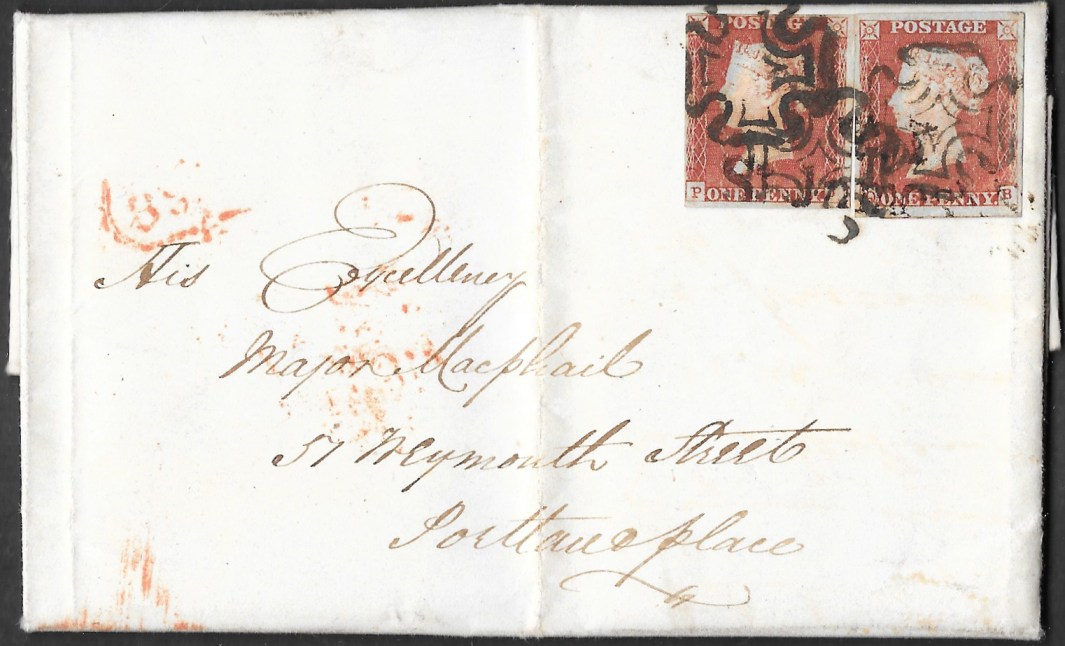 POSTAGE POSTAGE
P ONE PENNY ONE PENNY B
His Excellency
Major Macphail
51 Weymouth Street
Portland place